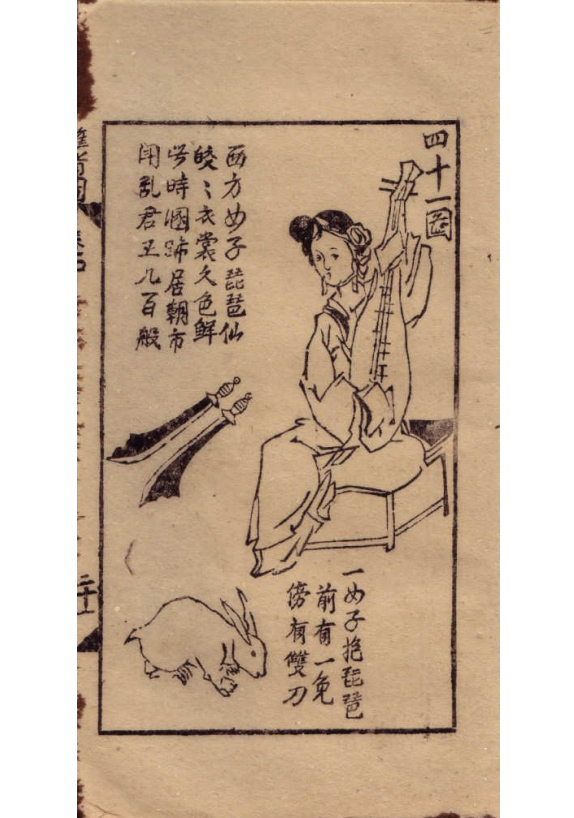 四十一圖
西方女子琵琶仙
皎〻衣裳久色鮮
此時國跡居朝市
鬧乱君王几百般
一女子抱琵琶
前有一兔
傍有雙刀
二十一